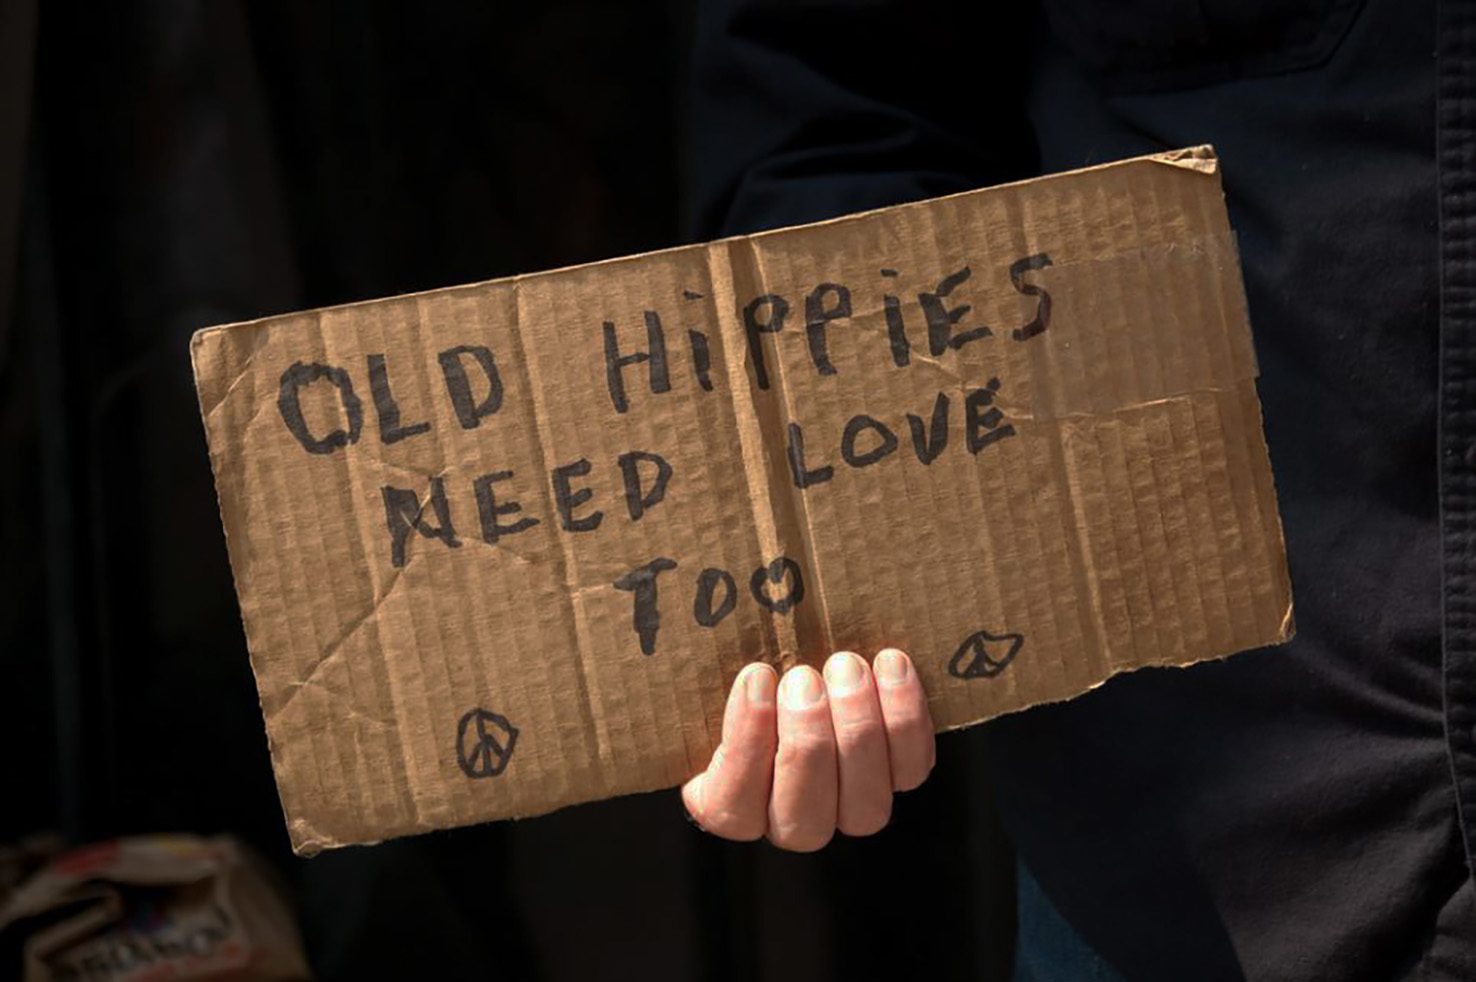 OLD HiPPiES
NEED LOVE
TOO